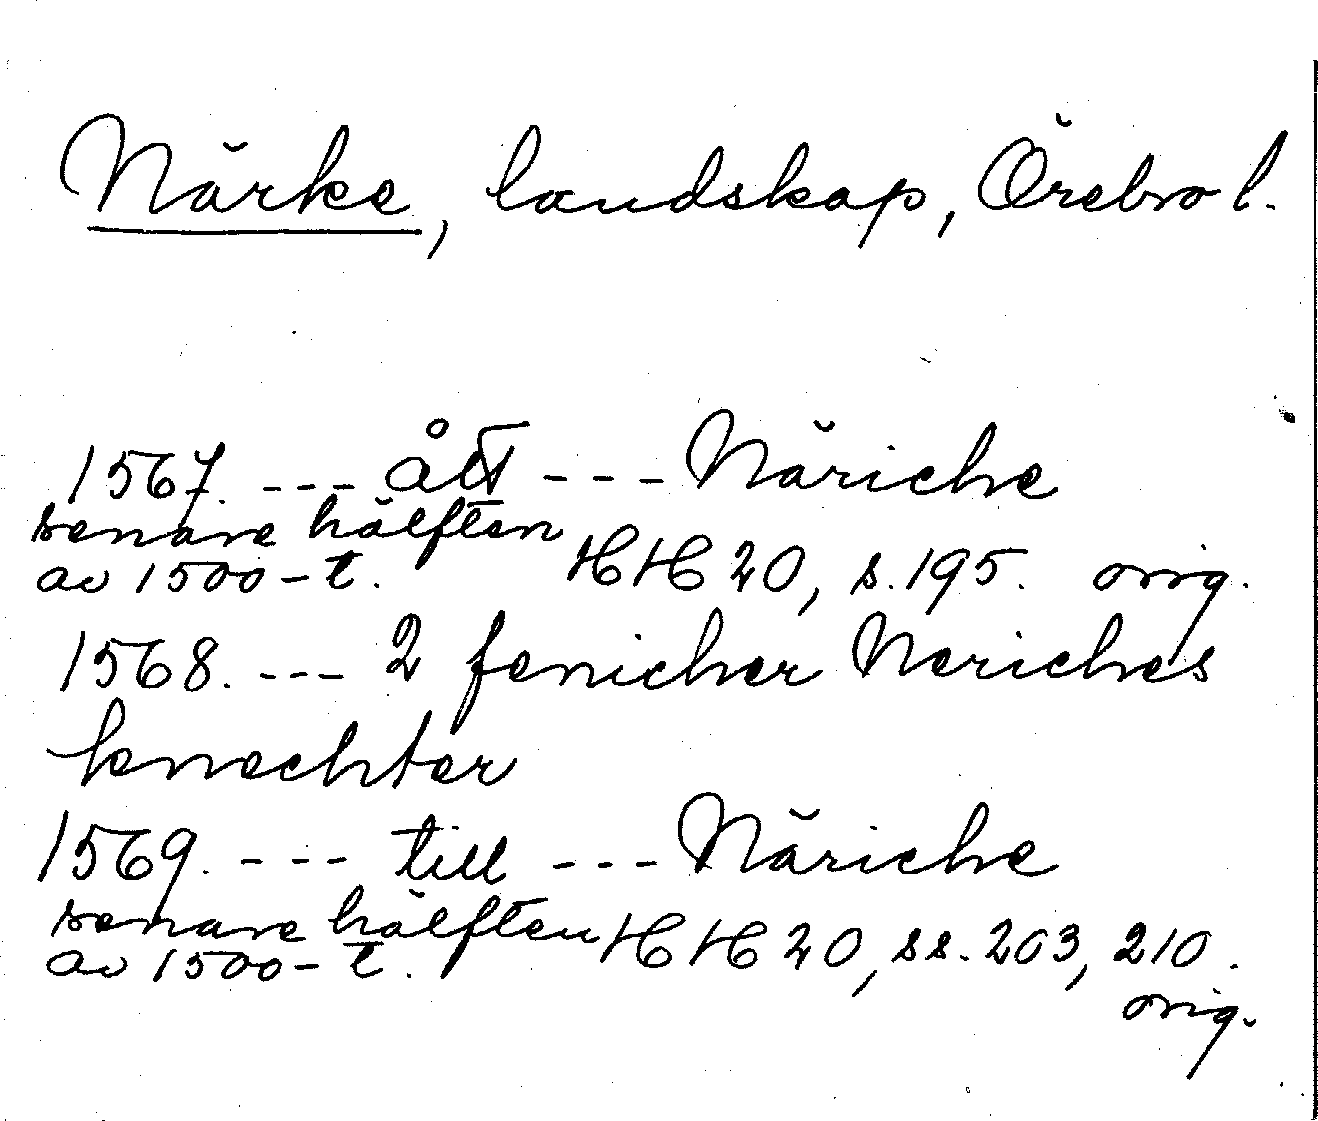 Närke, landskap, Örebro l.
1567. --- ått --- Näriche
senare hälften
av 1500-t. HH 20, s. 195. orig.
1568. --- 2 fenicher Neriches
knechter
1569. --- till --- Näriche
senare hälften HH 20, ss. 203, 210.
av 1500-t.
orig.